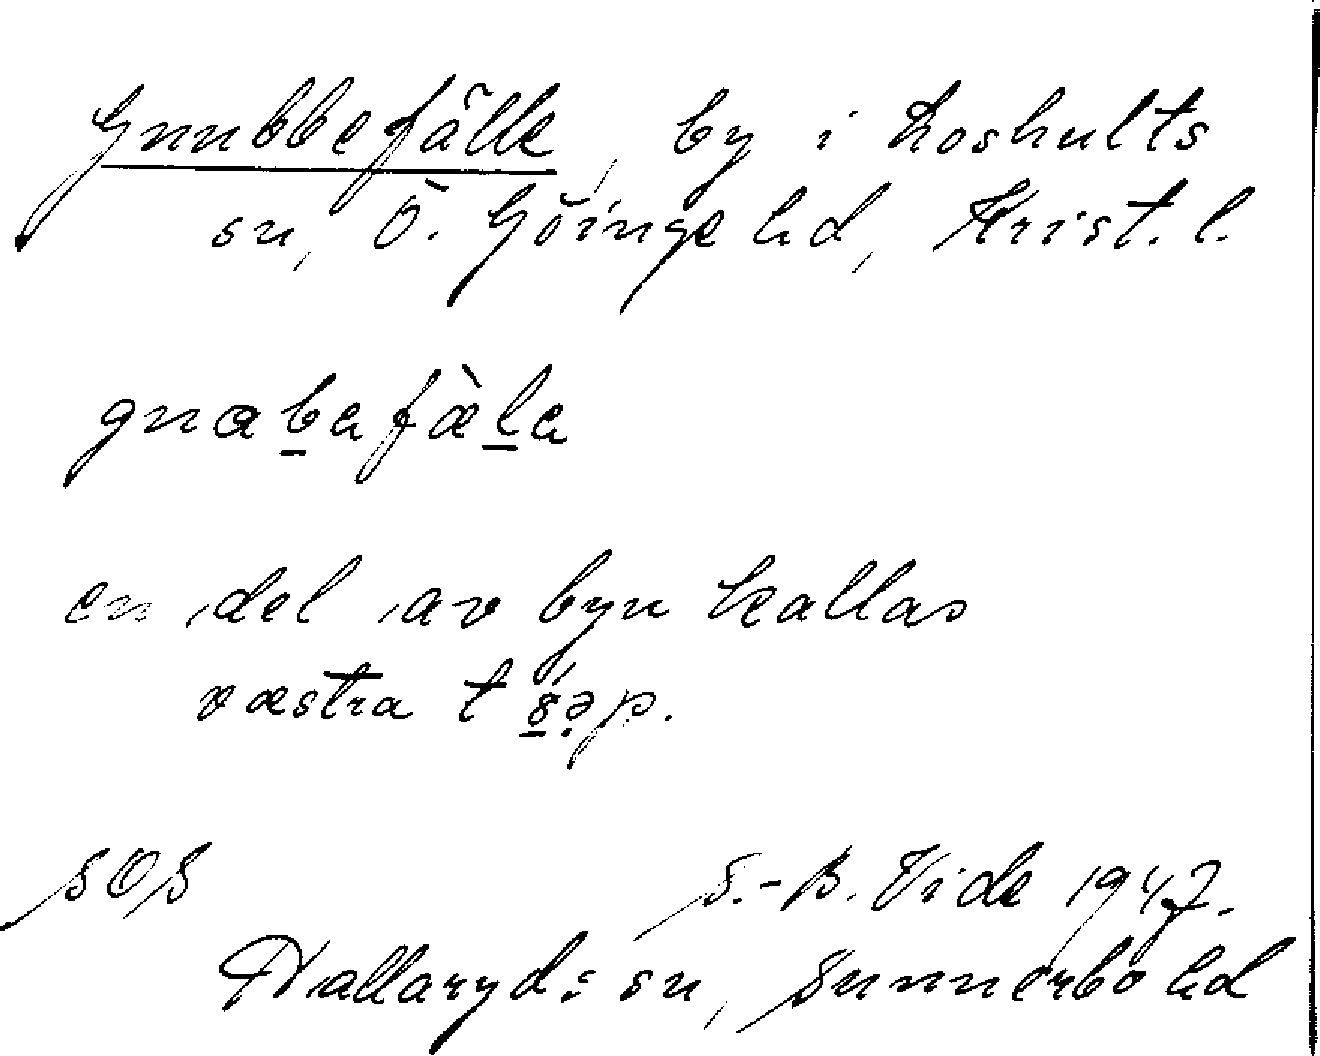 Gnubbefälle, by i Loshults
sn, Ö. Göinge hd, Krist. l.
gnabafàla
en del av byn kallas
væstra t
SOS S.-B. Vide 1947.
Hallaryds sn, Sunnerbo hd